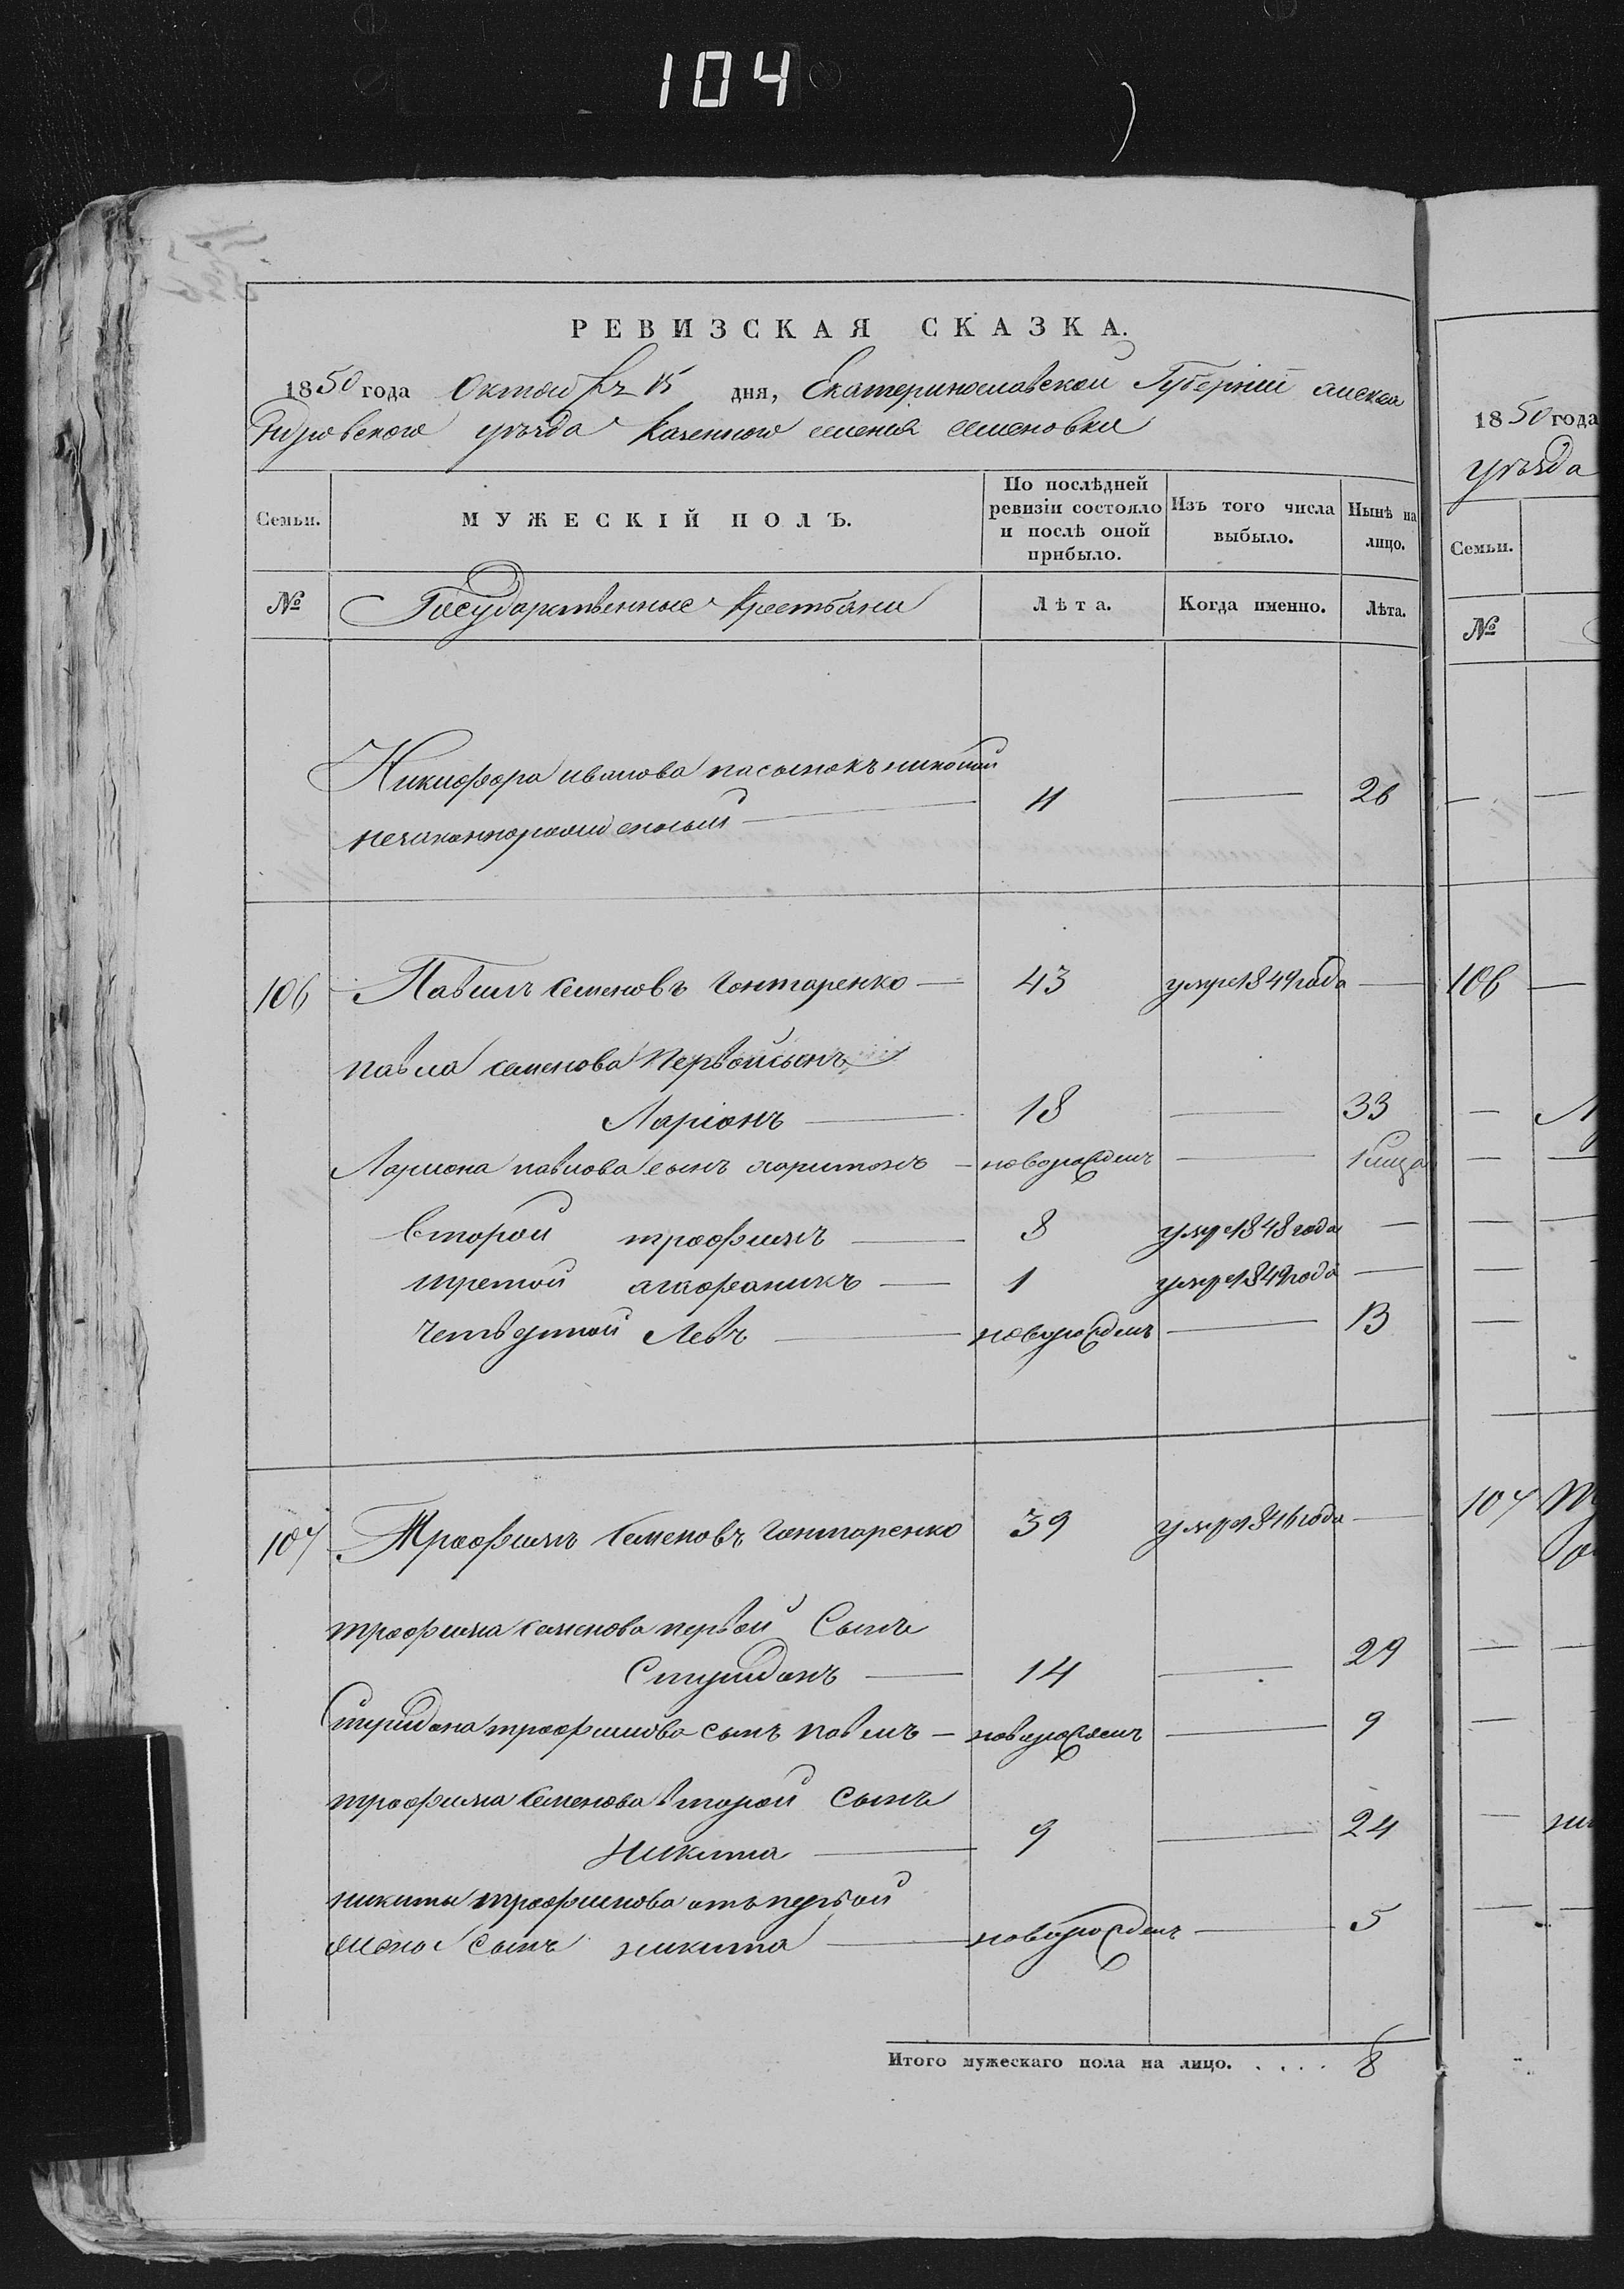 104
РЕВИЗСКАЯ СКАЗКА.
1850 года Октября 15 дня, Екатеринославской Губерніи Алекса
ндровского уѣзда казенного селенія Семеновки
Семьи.
МУЖЕСКІЙ ПОЛЪ.
По послѣдней ревизіи состояло и послѣ оной прибыло.
Изъ того числа выбыло.
Нынѣ на лицо.
№
Государственные крестьяне
Лѣта.
Когда именно.
Лѣта.
Никифора иванова пасынокъ
незаконнорожденный — 11 — 26
106 Павелъ Семеновъ Гонтаренко — 43 умре 1849 года —
павла семенова Первой сынъ
Ларіонъ — 18 — 33
Лариона павлова сынъ харитонъ — новорожденъ — 1
второй трофимъ — 8 умре 1848 года —
третой агафоникъ — 1 умре 1849 года —
четвертой Левъ — новорожденъ — 13
107 Трофимъ Семеновъ Гонтаренко 39 умре 1846 года —
трофима семенова первой Сынъ
Спиридонъ — 14 — 29
Спиридона трофимова сынъ павелъ — новорожденъ — 9
трофима Семенова второй Сынъ
Никита — 9 — 24
никиты трофимова отъ первой
жены сынъ никита — новорожденъ — 5
Итого мужескаго пола на лицо. . . . . 8
1850 года
уѣзда
Семьи.
№
106
107